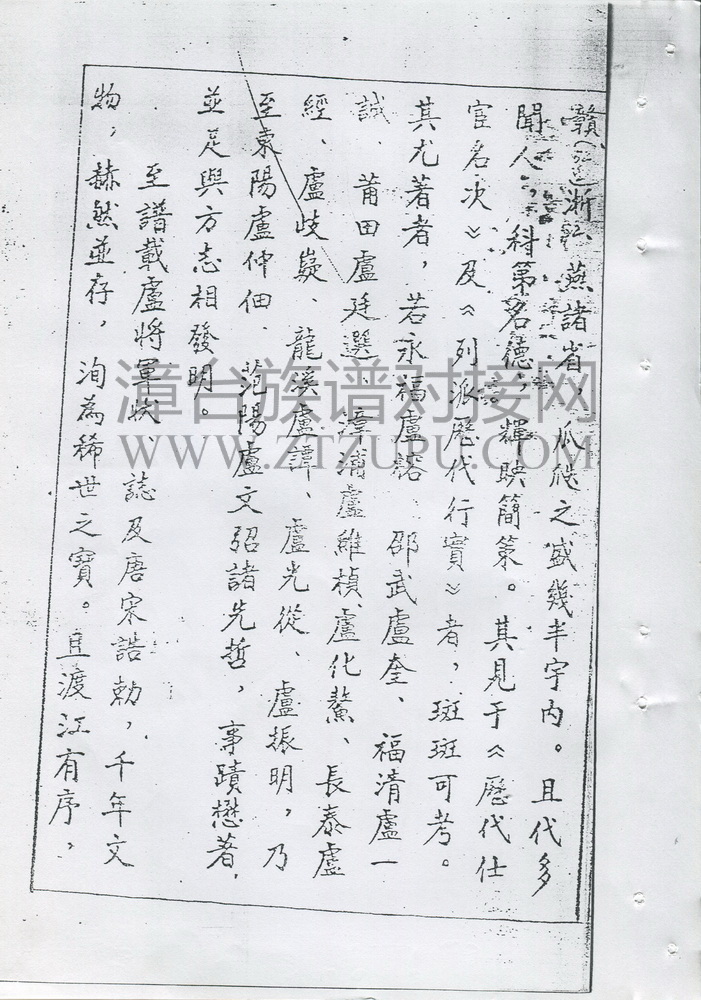 贛、浙、燕諸省，瓜瓞之盛幾半宇內。且代多
聞人，科第名德，輝映簡策。其見于《歷代仕
宦名次》及《列派歷代行實》者，斑斑可考。
其尤著者，若永福盧 、邵武盧奎、福清盧一
誠、莆田盧廷選、漳浦盧維楨、盧化鰲、長泰盧
經、盧岐嶷、龍溪盧譚、盧光從、盧振明，乃
至東陽盧仲佃、范陽盧文弨諸先哲，事蹟懋著，
並足與方志相發明。
至譜載盧將軍狀、誌及唐宋誥勅，千年文
物，赫然並存，洵為稀世之寶。且渡江有序，
漳台族谱对接网
WWW.ZTZUPU.COM